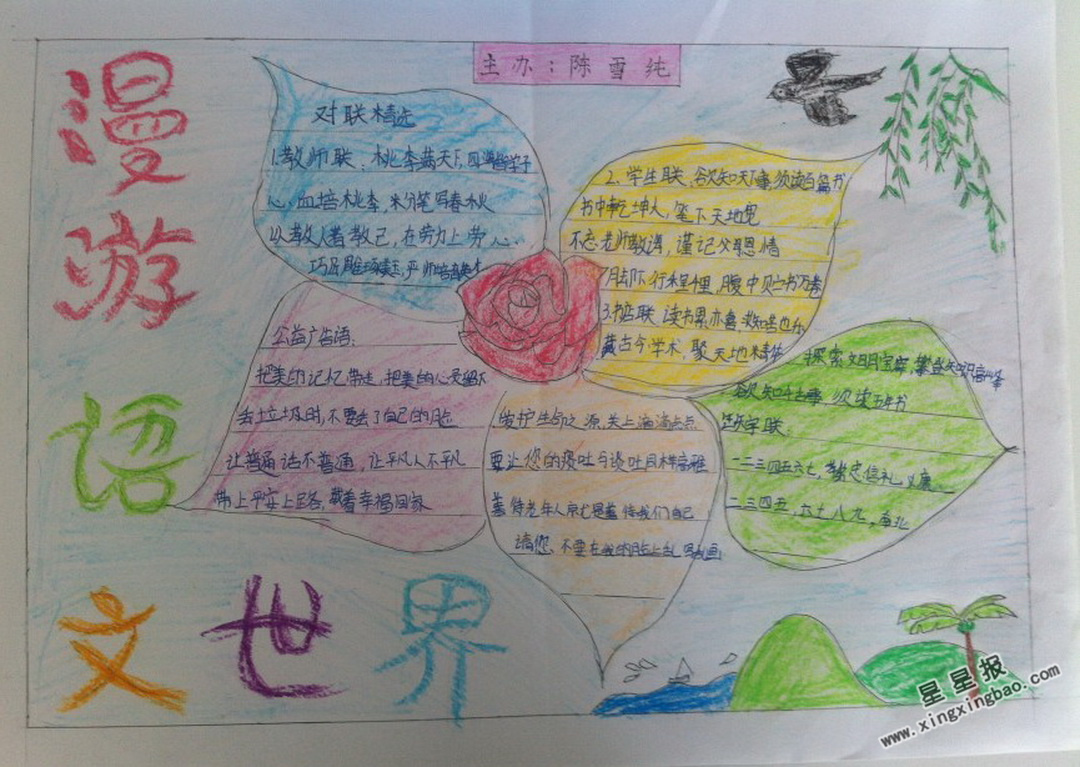 漫游语文世界
主办：陈雪纯
对联精选
1.教师联：桃李满天下，四海皆学子
心血培桃李，粉笔写春秋
以教人者教己，在劳力上劳心
巧匠雕琢美玉，严师培育
2.学生联：欲知天下事，须读百篇书
书中乾坤大，笔下天地宽
不忘老师教诲，谨记父母恩情
脚下行程千里，腹中贮书万卷
3.书店联：读书累亦喜，求知苦也乐
藏古今学术，聚天地精华
探索文明宝库，攀登知识高峰
欲知千古事，须读五车书
缺字联
二三四五六七，孝悌忠信礼义廉
二三四五，六七八九，南北
公益广告语：
把美的记忆带走，把美的心灵留下
丢垃圾时，不要丢了自己的脸
让普通话不普通，让平凡人不平凡
带上平安上路，载着幸福回家
爱护生命之源，关上滴滴点点
要让您的痰吐与谈吐同样高雅
善待老年人就是善待我们自己
请您，不要在我的脸上乱写乱画
星星报
www.xingxingbao.com